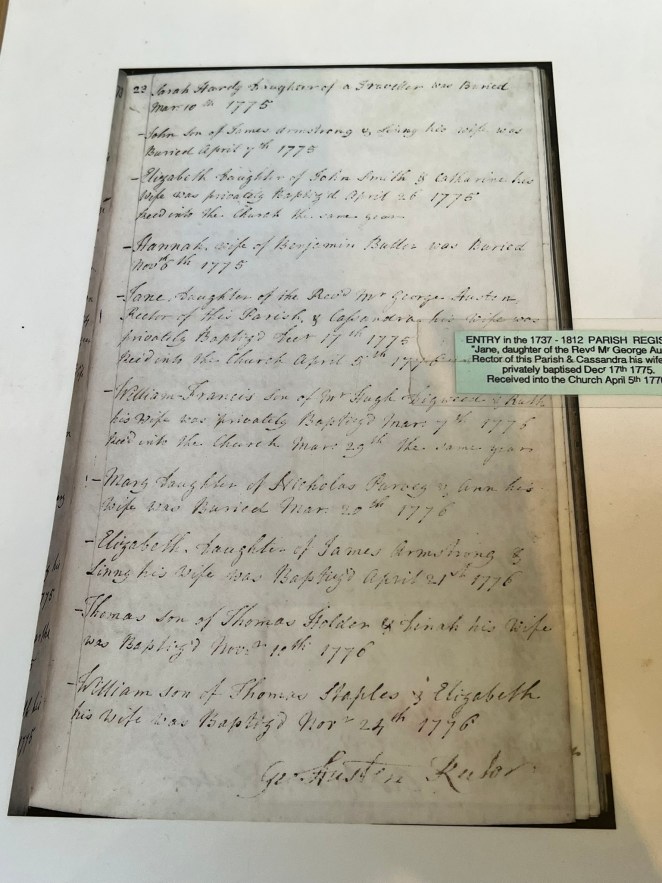 23 Sarah Hardy Daughter of a Traveller was Buried
Mar: 10th 1775
-John son of James Armstrong & his wife was
Buried April 7th 1775
-Elizabeth Daughter of John Smith & Catharine his
Wife was privately Baptiz'd April 26 1775
Rec'd into the Church the same year
-Hannah wife of Benjamin Butler was Buried
Nov 6th 1775
-Jane Daughter of the Rev'd Mr George Austen
Rector of this Parish & Cassandra his Wife was
privately Baptiz'd Decr 17th 1775
Rec'd into the Church April 5th 1776
-William-Francis son of Mr Hugh & Ruth
his Wife was privately Baptiz'd Mar: 7th 1776
Rec'd into the Church Mar: 29th the same year
-Mary Daughter of Nicholas & Ann his
Wife was Buried Mar: 20th 1776
-Elizabeth Daughter of James Armstrong &
his Wife was Baptiz'd April 21st 1776
-Thomas son of Thomas Holder & his Wife
was Baptiz'd Novr 10th 1776
-William son of Thomas Staples & Elizabeth
his Wife was Baptiz'd Novr 24th 1776
Geo: Austen Rector
ENTRY in the 1737 - 1812 PARISH REGIS
"Jane, daughter of the Revd Mr George Au
Rector of this Parish & Cassandra his wife
privately baptised Decr 17th 1775.
Received into the Church April 5th 1776